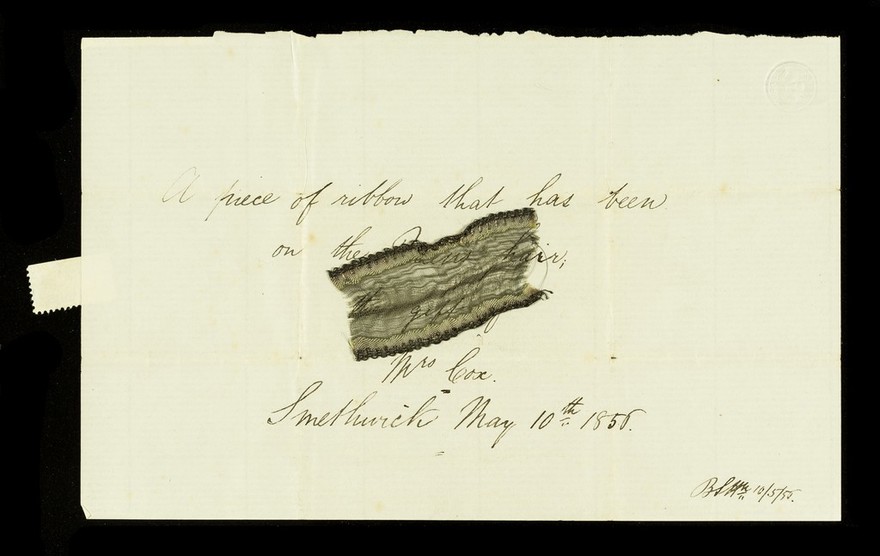 A piece of ribbon that has been
on the Queens hair;
the gift of
Mrs Cox.
Smethwick May 10th 1855.
10/5/55.